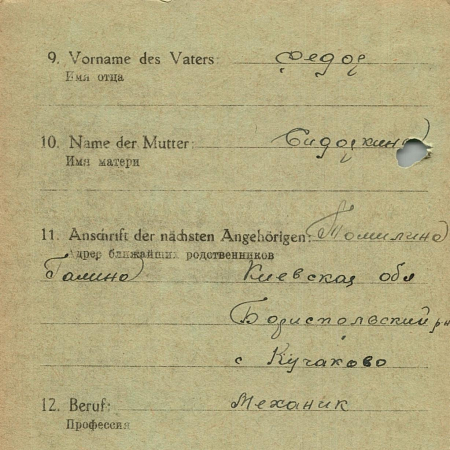 9. Vorname des Vaters: Федор
Имя отца
10. Name der Mutter: Сидоркина
Имя матери
11. Anschrift der nächsten Angehörigen: Томилина
Адрес ближайших родственников
Галина Киевская обл
Бориспольский рн
с Кучаково
12. Beruf: Механик
Профессия